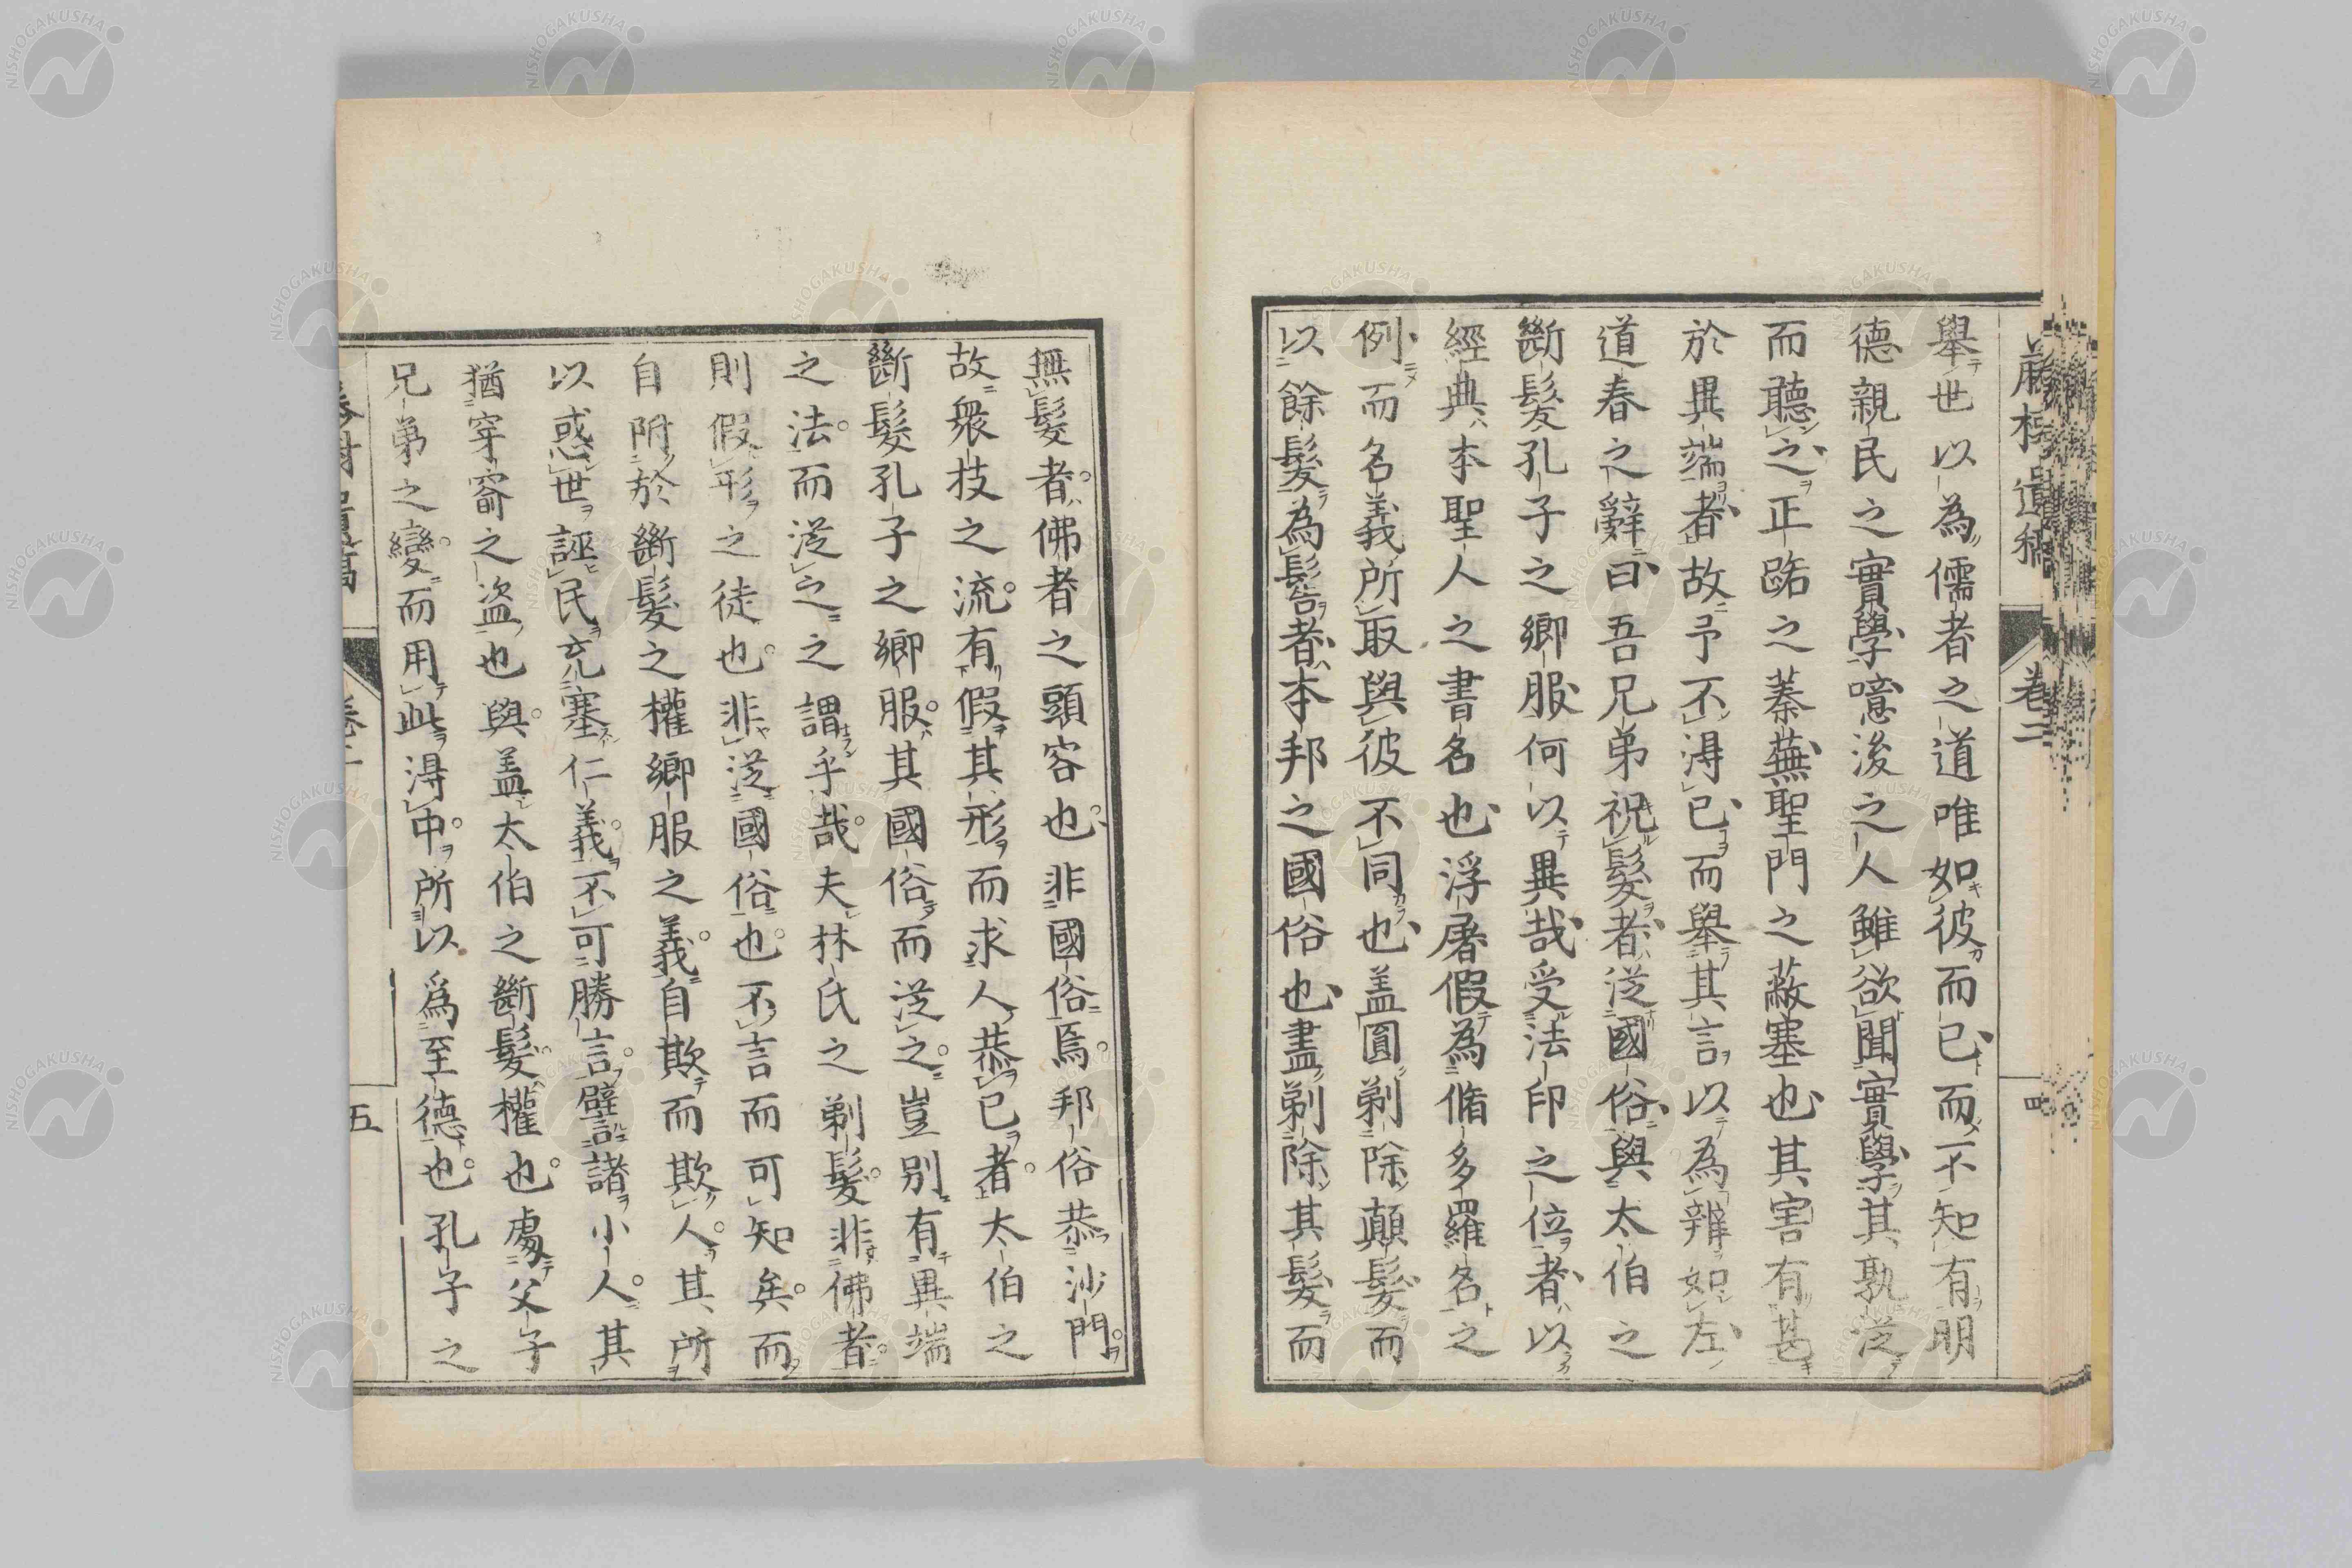 舉世以為儒者之道唯如彼而已而不知有明
德親民之實學噫後之人雖欲聞實學其孰從
而聽之正路之蓁蕪聖門之蔽塞也其害有甚
於異端者故予不得已而舉其言以為辨如左
道春之辭曰吾兄弟祝髮者從國俗與太伯之
斷髮孔子之鄉服何以異哉受法印之位者以
經典本聖人之書名也浮屠假為脩多羅名之
例而名義所取與彼不同也蓋圓剃除顛髮而
以餘髮為髻者本邦之國俗也盡剃除其髮而
無髮者佛者之頭容也非國俗焉邦俗恭沙門
故衆技之流有假其形而求人恭己者太伯之
斷髮孔子之鄉服其國俗而從之豈別有異端
之法而從之之謂乎哉夫林氏之剃髮非佛者
則假形之徒也非從國俗也不言而可知矣而
自附於斷髮之權鄉服之義自欺而欺人其所
以惑世誣民充塞仁義不可勝言譬諸小人其
猶穿窬之盜也與蓋太伯之斷髮權也處父子
兄弟之變而用此得中所以爲至德也孔子之
卷二
四
五
NISHOGAKUSHA